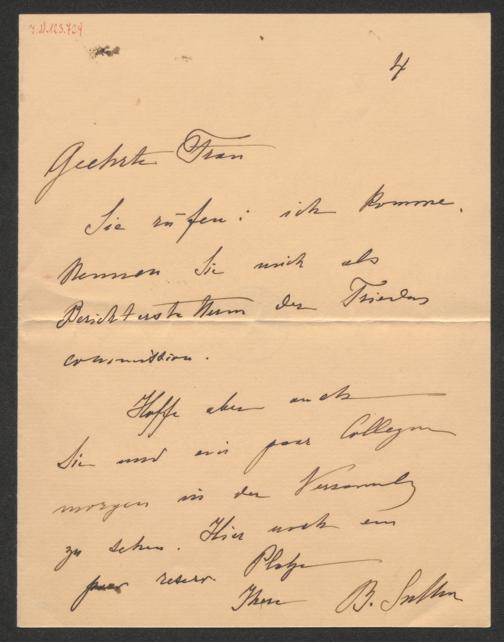 I.N.123.729
4
Geehrte Frau
Sie rufen: ich komme.
Nennen Sie mich als
Berichterstatterin der Friedens
commission.
Hoffe aber auch
Sie und ein paar Collegen
morgen in der Versammlg
zu sehen. Hier noch ein
paar reserv. Plätze
Ihre B. Suttner